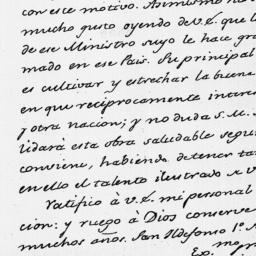 con este motivo. Asimismo ha
mucho gusto oyendo de V.E. que l
de ese Ministro suyo le hace gra
mado en ese Pais. Su principal
es cultivar y estrechar la buena
en que recíprocamente interes
y otra nacion; y no duda S.M.
lidará esta obra saludable segun
conviene, habiendo de tener tan
en ello el talento ilustrado de V
Ratifico à V.E. mi personal
cion: y ruego à Dios conserve
muchos años. San Ildefonso 1º
Exmo